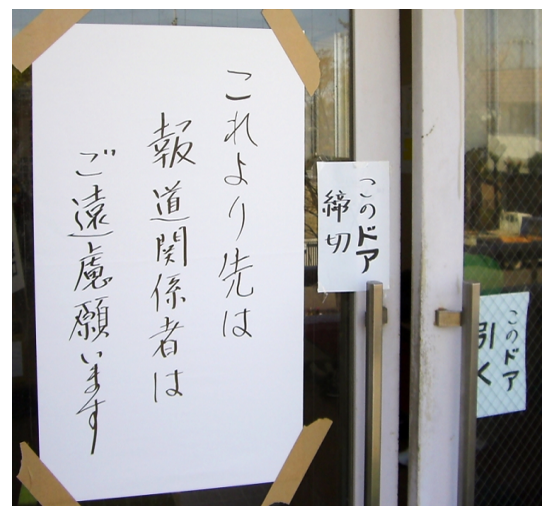 これより先は
報道関係者は
ご遠慮願います
このドア
締切
このドア
引く